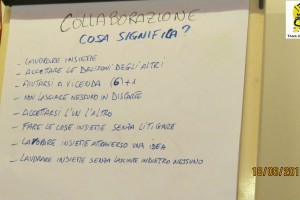 COLLABORAZIONE
COSA SIGNIFICA?
- LAVORARE INSIEME
- ACCETTARE LE DECISIONI DEGLI ALTRI
- AIUTARSI A VICENDA (6)+1
- NON LASCIARE NESSUNO IN DISPARTE
- ACCETTARSI L'UN L'ALTRO
- FARE LE COSE INSIEME SENZA LITIGARE
- LAVORARE INSIEME ATTRAVERSO UNA IDEA
- LAVORARE INSIEME SENZA LASCIARE INDIETRO NESSUNO